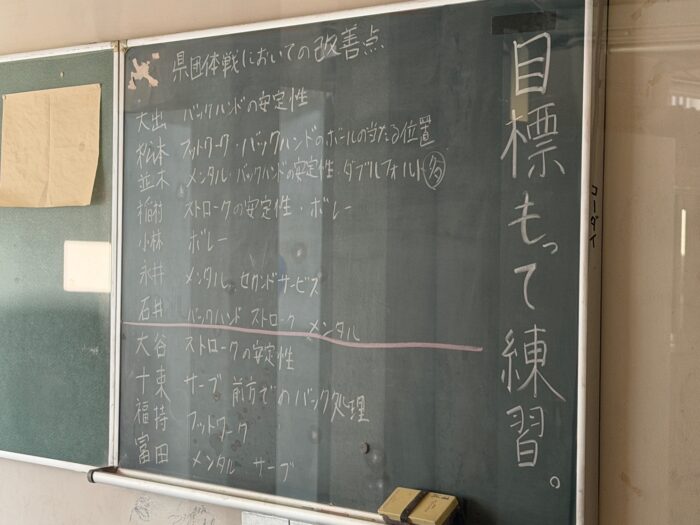 県団体戦においての改善点
大出 バックハンドの安定性
松本 フットワーク・バックハンドのボールの当たる位置
並木 メンタル・バックハンドの安定性・ダブルフォルト
稲村 ストロークの安定性・ボレー
小林 ボレー
永井 メンタル セカンドサービス
石井 バックハンド ストローク メンタル
大谷 ストロークの安定性
十東 サーブ 前方でのバック処理
福持 フットワーク
富田 メンタル サーブ
目標もって練習。
コーダイ